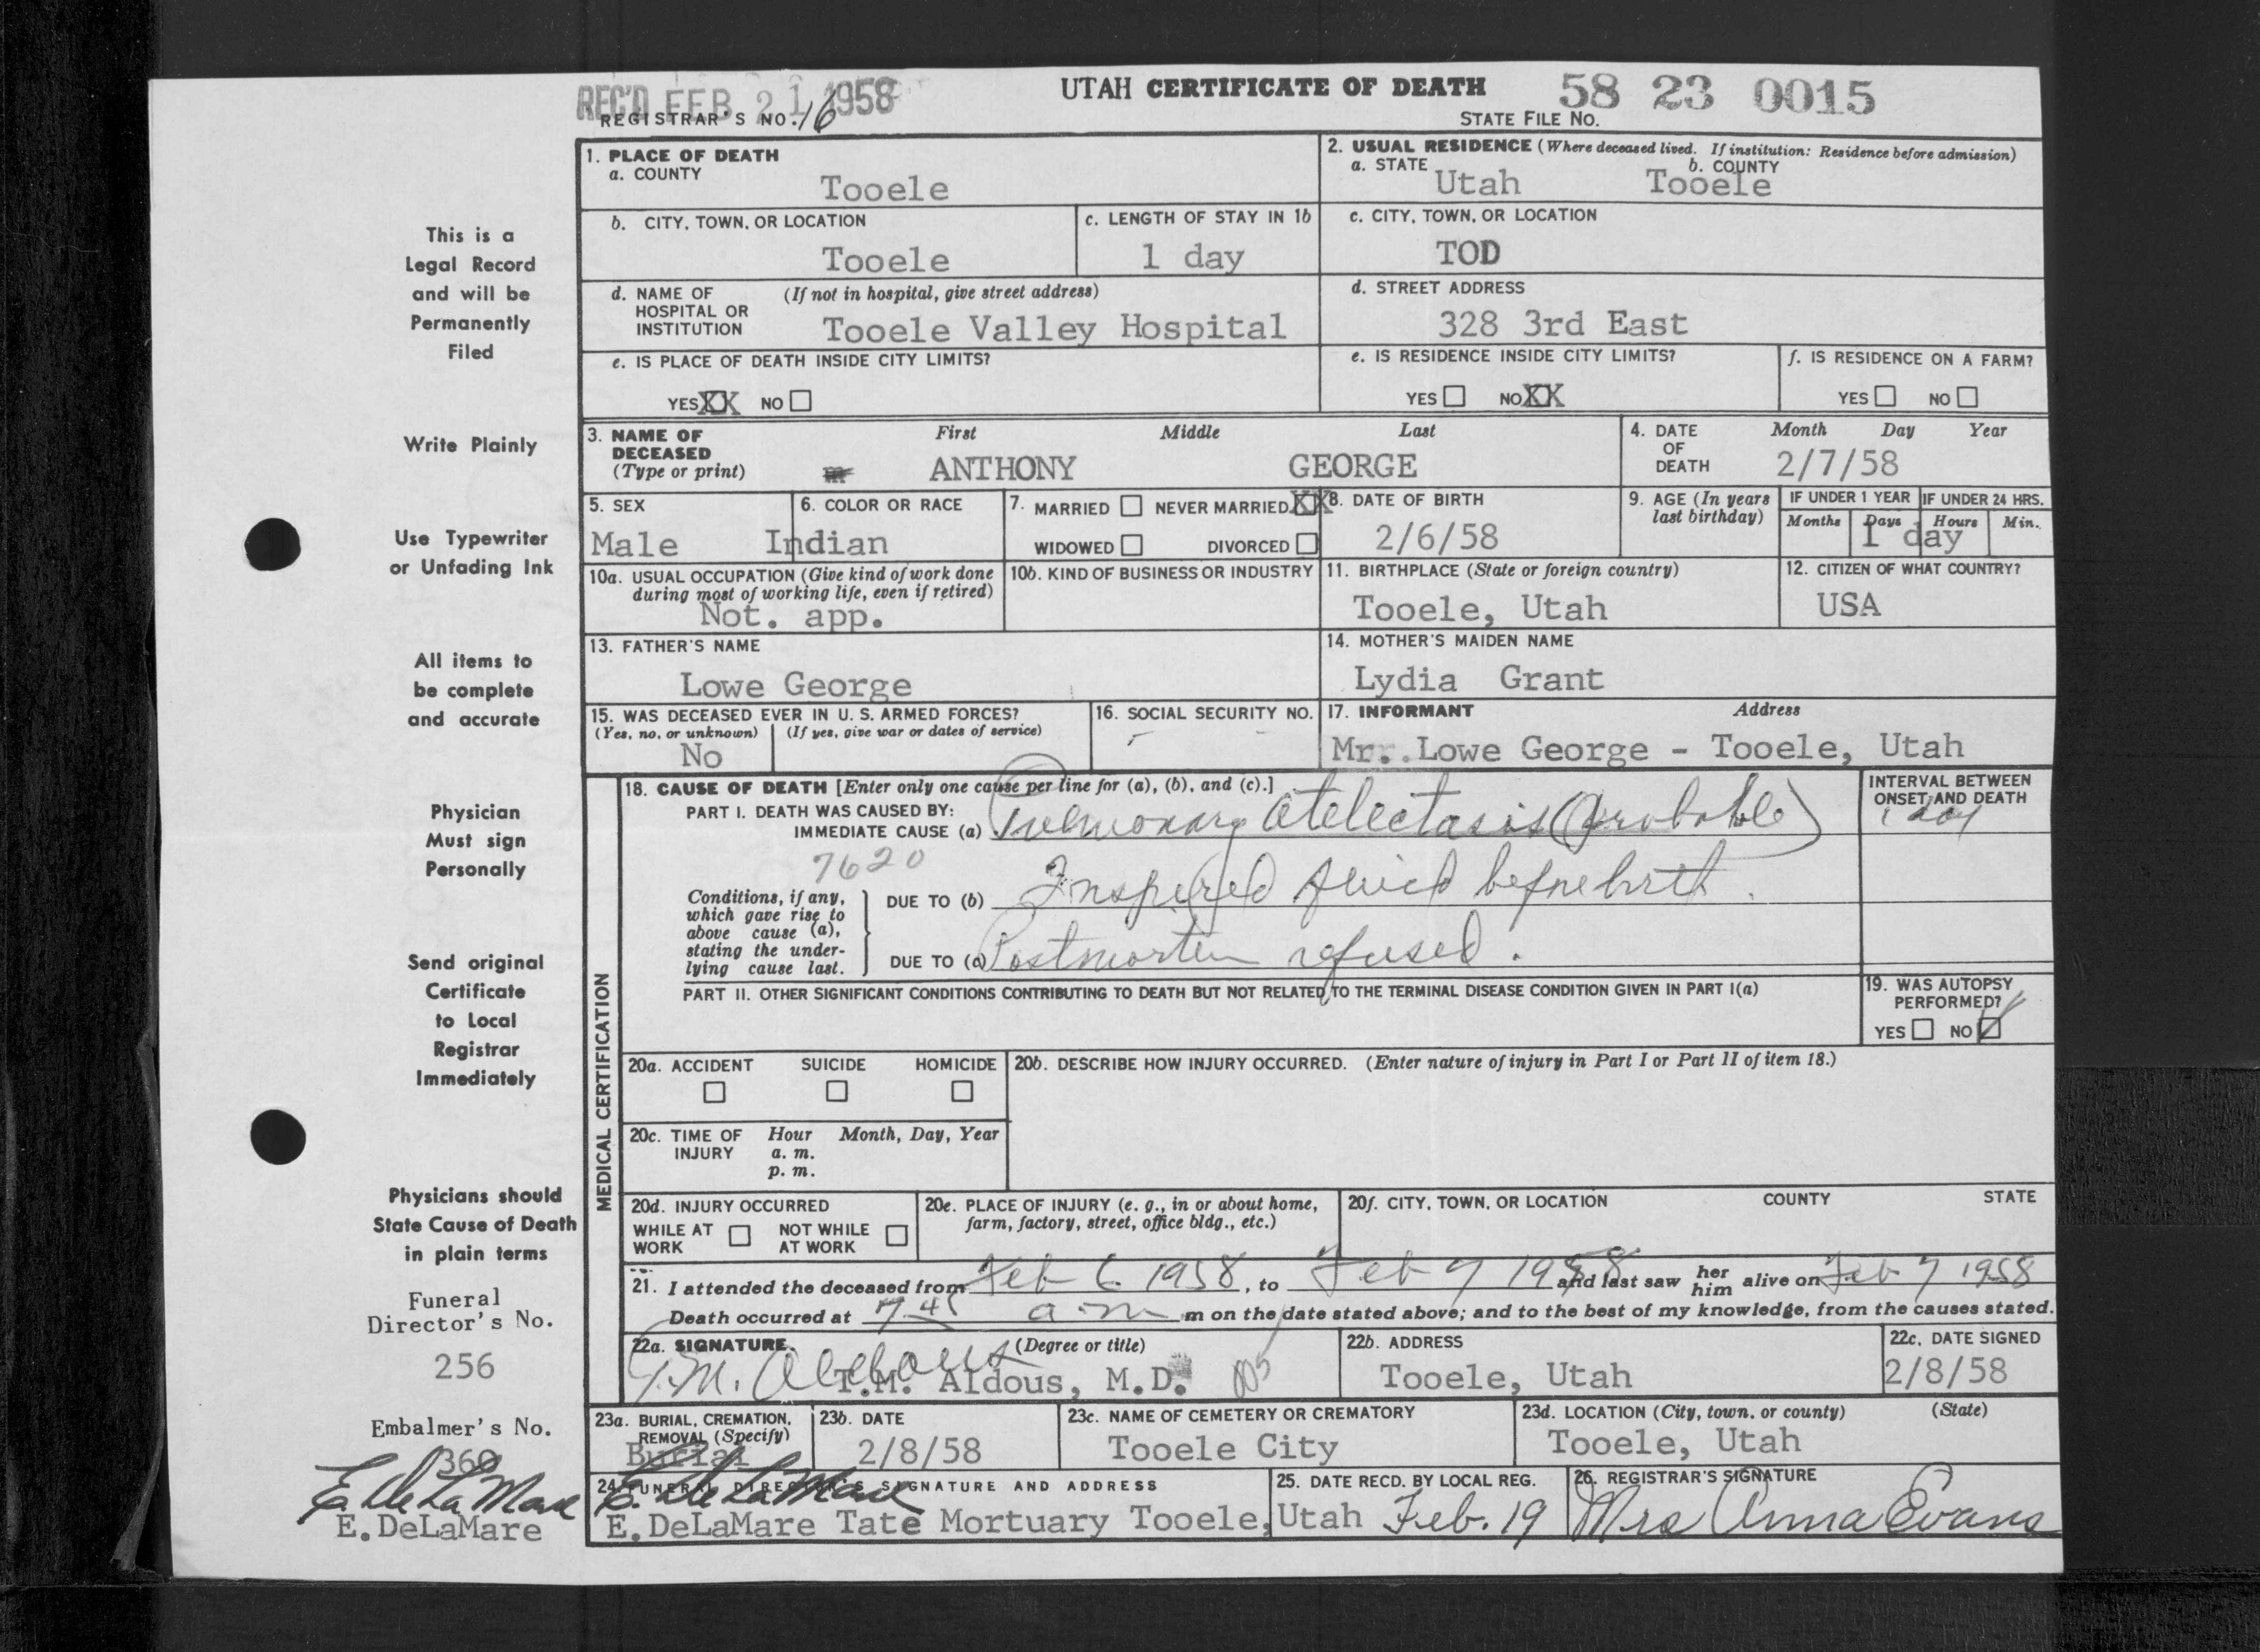 REC'D FEB 21 1958
UTAH CERTIFICATE OF DEATH
58 23 0015
REGISTRAR'S NO. 16
STATE FILE No.
This is a
Legal Record
and will be
Permanently
Filed
Write Plainly
Use Typewriter
or Unfading Ink
All items to
be complete
and accurate
Physician
Must sign
Personally
Send original
Certificate
to Local
Registrar
Immediately
Physicians should
State Cause of Death
in plain terms
Funeral
Director's No.
256
Embalmer's No.
360
E. DeLaMare
E. DeLaMare
1. PLACE OF DEATH
a. COUNTY
Tooele
2. USUAL RESIDENCE (Where deceased lived. If institution: Residence before admission)
a. STATE b. COUNTY
Utah Tooele
b. CITY, TOWN, OR LOCATION
Tooele
c. LENGTH OF STAY IN 1b
1 day
c. CITY, TOWN, OR LOCATION
TOD
d. NAME OF (If not in hospital, give street address)
HOSPITAL OR
INSTITUTION
Tooele Valley Hospital
d. STREET ADDRESS
328 3rd East
e. IS PLACE OF DEATH INSIDE CITY LIMITS?
YES XX NO
e. IS RESIDENCE INSIDE CITY LIMITS?
YES NO XX
f. IS RESIDENCE ON A FARM?
YES NO
3. NAME OF First Middle Last
DECEASED
(Type or print)
ANTHONY GEORGE
4. DATE Month Day Year
OF
DEATH
2/7/58
5. SEX
Male
6. COLOR OR RACE
Indian
7. MARRIED NEVER MARRIED XX
WIDOWED DIVORCED
8. DATE OF BIRTH
2/6/58
9. AGE (In years
last birthday)
IF UNDER 1 YEAR IF UNDER 24 HRS.
Months Days Hours Min.
1 day
10a. USUAL OCCUPATION (Give kind of work done
during most of working life, even if retired)
Not. app.
10b. KIND OF BUSINESS OR INDUSTRY
11. BIRTHPLACE (State or foreign country)
Tooele, Utah
12. CITIZEN OF WHAT COUNTRY?
USA
13. FATHER'S NAME
Lowe George
14. MOTHER'S MAIDEN NAME
Lydia Grant
15. WAS DECEASED EVER IN U. S. ARMED FORCES?
(Yes, no, or unknown) (If yes, give war or dates of service)
No
16. SOCIAL SECURITY NO.
17. INFORMANT Address
Mr. Lowe George - Tooele, Utah
MEDICAL CERTIFICATION
18. CAUSE OF DEATH [Enter only one cause per line for (a), (b), and (c).]
INTERVAL BETWEEN
ONSET AND DEATH
PART I. DEATH WAS CAUSED BY:
IMMEDIATE CAUSE (a) Pulmonary Atelectasis (Probable) 1 day
7620
Conditions, if any,
which gave rise to
above cause (a),
stating the under-
lying cause last.
DUE TO (b) Inspired fluid before birth.
DUE TO (c) Postmortem refused.
PART II. OTHER SIGNIFICANT CONDITIONS CONTRIBUTING TO DEATH BUT NOT RELATED TO THE TERMINAL DISEASE CONDITION GIVEN IN PART I(a)
19. WAS AUTOPSY
PERFORMED?
YES NO
20a. ACCIDENT SUICIDE HOMICIDE
20b. DESCRIBE HOW INJURY OCCURRED. (Enter nature of injury in Part I or Part II of item 18.)
20c. TIME OF Hour Month, Day, Year
INJURY a. m.
p. m.
20d. INJURY OCCURRED
WHILE AT NOT WHILE
WORK AT WORK
20e. PLACE OF INJURY (e. g., in or about home,
farm, factory, street, office bldg., etc.)
20f. CITY, TOWN, OR LOCATION COUNTY STATE
21. I attended the deceased from Feb 6 1958, to Feb 7 1958 and last saw her him alive on Feb 7 1958
Death occurred at 7 45 a.m m on the date stated above; and to the best of my knowledge, from the causes stated.
22a. SIGNATURE. (Degree or title)
T.M. Aldous
T.M. Aldous, M.D.
22b. ADDRESS
Tooele, Utah
22c. DATE SIGNED
2/8/58
23a. BURIAL, CREMATION,
REMOVAL (Specify)
Burial
23b. DATE
2/8/58
23c. NAME OF CEMETERY OR CREMATORY
Tooele City
23d. LOCATION (City, town, or county) (State)
Tooele, Utah
24. FUNERAL DIRECTOR'S SIGNATURE AND ADDRESS
E. DeLaMare
E. DeLaMare Tate Mortuary Tooele, Utah
25. DATE RECD. BY LOCAL REG.
Feb. 19
26. REGISTRAR'S SIGNATURE
Mrs Anna Evans